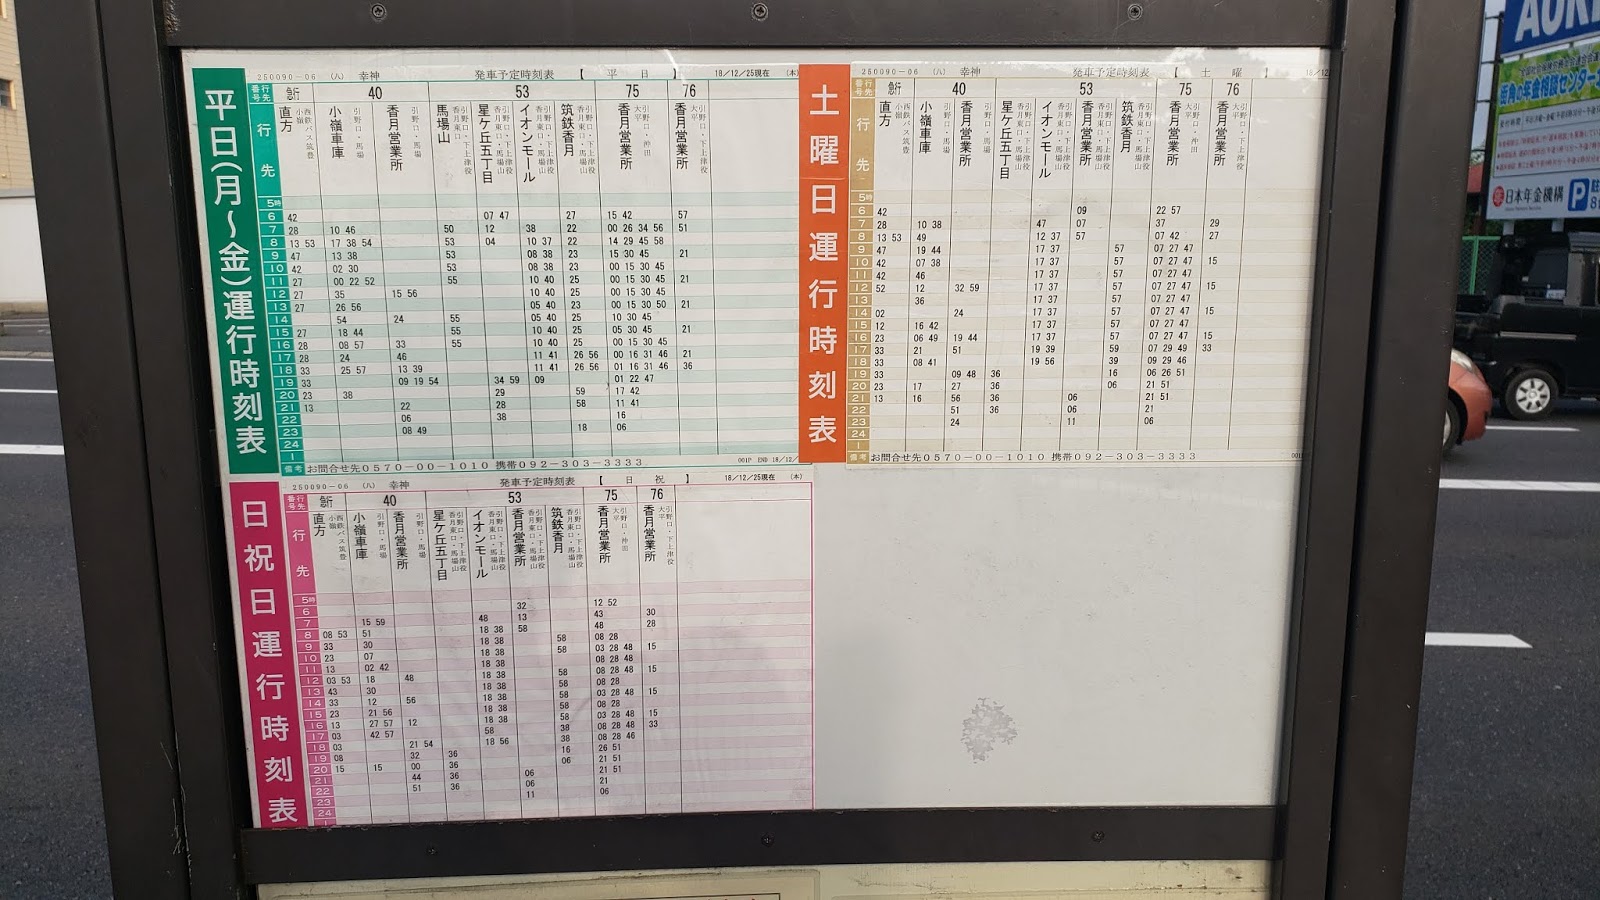 平日(月～金)運行時刻表
250090-06 (八) 幸神 発車予定時刻表 【 平 日 】 18/12/25現在 (本)
行先番号 急行 40 53 75 76
行先 直方 西鉄バス筑豊 小嶺 小嶺車庫 引野口・馬場 香月営業所 引野口・馬場 馬場山 引野口・下上津役 香月東口 星ケ丘五丁目 引野口・下上津役 香月東口・馬場山 イオンモール 引野口・下上津役 香月東口・馬場山 筑鉄香月 引野口・下上津役 香月東口・馬場山 香月営業所 引野口・沖田 大平 香月営業所 引野口・下上津役 大平
5時
6 42 07 47 27 15 42 57
7 28 10 46 50 12 38 22 00 26 34 56 51
8 13 53 17 38 54 53 04 10 37 22 14 29 45 58
9 47 13 38 53 08 38 23 15 30 45 21
10 42 02 30 53 08 38 23 00 15 30 45
11 27 00 22 52 55 10 40 25 00 15 30 45
12 27 35 15 56 10 40 25 00 15 30 45
13 27 26 56 05 40 23 00 15 30 50 21
14 54 24 55 10 40 25 10 30 45
15 27 18 44 55 10 40 25 05 30 45 21
16 28 08 57 33 55 10 40 25 00 15 30 45
17 28 24 46 11 41 26 56 00 16 31 46 21
18 33 25 57 13 39 11 41 26 56 01 16 31 46 36
19 33 09 19 54 34 59 09 01 22 47
20 23 38 29 59 17 42
21 13 22 28 58 11 41
22 06 38 16
23 08 49 18 06
24
1
備考 お問合せ先0570-00-1010 携帯092-303-3333 001P END 18/12/
土曜日運行時刻表
250090-06 (八) 幸神 発車予定時刻表 【 土 曜 】 18/12
行先番号 急行 40 53 75 76
行先 直方 西鉄バス筑豊 小嶺 小嶺車庫 引野口・馬場 香月営業所 引野口・馬場 星ケ丘五丁目 引野口・下上津役 香月東口・馬場山 イオンモール 引野口・下上津役 香月東口・馬場山 香月営業所 引野口・下上津役 香月東口・馬場山 筑鉄香月 引野口・下上津役 香月東口・馬場山 香月営業所 引野口・沖田 大平 香月営業所 引野口・下上津役 大平
5時
6 42 09 22 57
7 28 10 38 47 07 37 29
8 13 53 49 12 37 57 07 42 27
9 47 19 44 17 37 57 07 27 47
10 42 07 38 17 37 57 07 27 47 15
11 42 46 17 37 57 07 27 47
12 52 12 32 59 17 37 57 07 27 47 15
13 36 17 37 57 07 27 47
14 02 24 17 37 57 07 27 47 15
15 12 16 42 17 37 57 07 27 47
16 23 06 49 19 44 17 37 57 07 27 47 15
17 33 21 51 19 39 59 07 29 49 33
18 33 08 41 19 56 39 09 29 46
19 33 09 48 36 16 06 26 51
20 23 17 27 36 06 21 51
21 13 16 56 36 06 21 51
22 51 36 06 21
23 24 11 06
24
1
備考 お問合せ先0570-00-1010 携帯092-303-3333
日祝日運行時刻表
250090-06 (八) 幸神 発車予定時刻表 【 日 祝 】 18/12/25現在 (本)
行先番号 急行 40 53 75 76
行先 直方 西鉄バス筑豊 小嶺 小嶺車庫 引野口・馬場 香月営業所 引野口・馬場 星ケ丘五丁目 引野口・下上津役 香月東口・馬場山 イオンモール 引野口・下上津役 香月東口・馬場山 香月営業所 引野口・下上津役 香月東口・馬場山 筑鉄香月 引野口・下上津役 香月東口・馬場山 香月営業所 引野口・沖田 大平 香月営業所 引野口・下上津役 大平
5時
6 32 12 52
7 15 59 48 13 43 30
8 08 53 51 18 38 58 48 28
9 33 30 18 38 58 08 28
10 23 07 18 38 58 03 28 48 15
11 13 02 42 18 38 08 28 48
12 03 53 18 48 18 38 58 08 28 48 15
13 43 30 18 38 58 08 28
14 33 12 56 18 38 58 03 28 48 15
15 23 21 56 18 38 58 08 28
16 13 27 57 12 18 38 58 03 28 48 15
17 03 42 57 58 38 08 28 48 33
18 03 21 54 18 56 38 08 28 46
19 08 32 36 16 26 51
20 15 15 00 36 06 21 51
21 44 36 06 21 51
22 51 36 06 21
23 11 06
24
1
AOKI
街角の年金相談センター
日本年金機構
P 駐